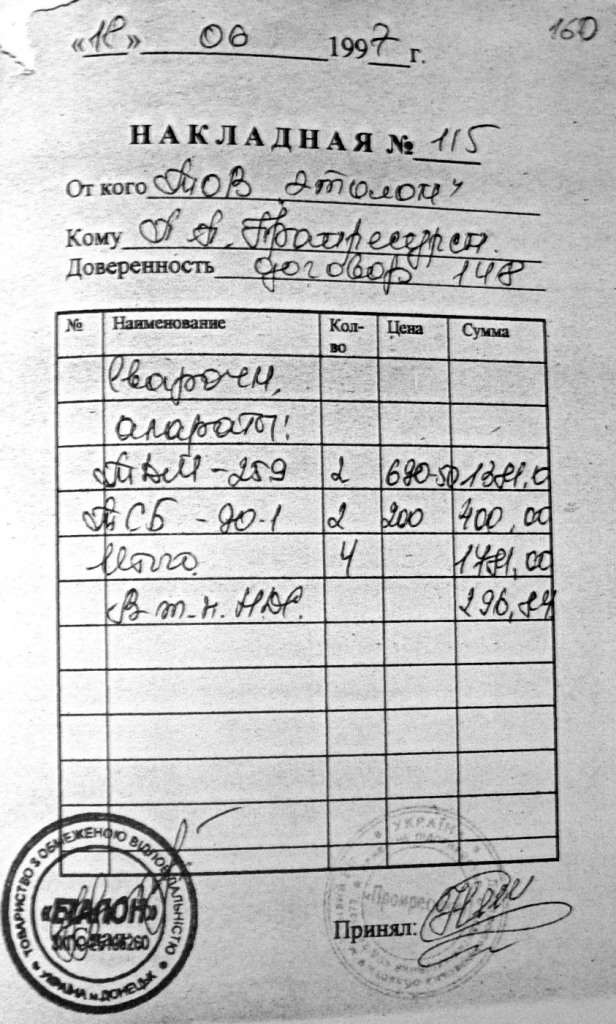 160
«18» 06 1997 г.
НАКЛАДНАЯ № 115
От кого ТОВ „Эталон“
Кому
Доверенность договор 148
№ Наименование Кол-во Цена Сумма
Сварочн.
апараты:
ТДМ-259 2 690-50 1381,0
ТСБ-90-1 2 200 400,00
Итого 4 1781,00
В т.ч. НДС. 296,84
ТОВАРИСТВО З ОБМЕЖЕНОЮ ВІДПОВІДАЛЬНІСТЮ
«ЕТАЛОН»
УКРАЇНА м. ДОНЕЦЬК
УКРАЇНА
Принял: